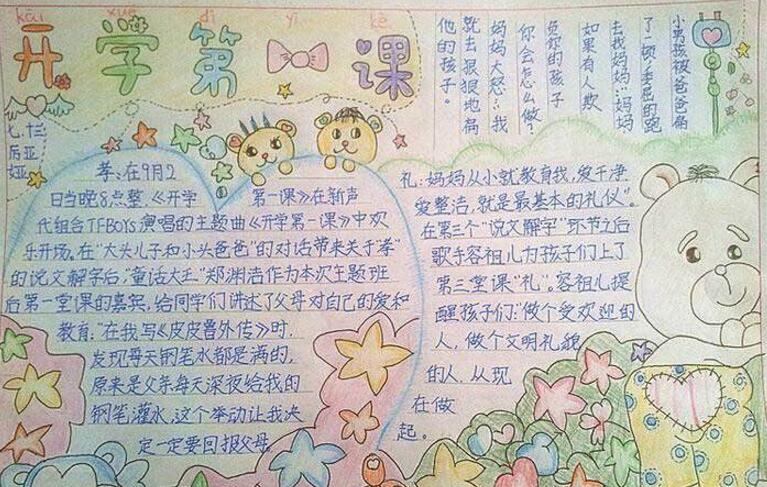 kāi xué dì yī kè
开学第课
小男孩被爸爸扁
了一顿,委屈的跑
去找妈妈:"妈妈
如果有人欺
负你的孩子
你会怎么做?
妈妈大怒:"我
就去狠狠地扁
他的孩子。
七.十三
亚
娅
孝:在9月2
日当晚8点整,《开学第一课》在新声
代组合TFBOYS演唱的主题曲《开学第一课》中欢
乐开场,在"大头儿子和小头爸爸"的对话带来关于"孝"
的说文解字后,"童话大王"郑渊洁作为本次主题班
后第一堂课的嘉宾,给同学们讲述了父母对自己的爱和
教育:"在我写《皮皮鲁外传》时,
发现每天钢笔水都是满的,
原来是父亲每天深夜给我的
钢笔灌水,这个举动让我决
定一定要回报父母。
礼:妈妈从小就教育我,爱干净
爱整洁,就是最基本的礼仪"。
在第三个"说文解字"环节之后
歌手容祖儿为孩子们上了
第三堂课"礼"。容祖儿提
醒孩子们:"做个受欢迎的
人,做个文明礼貌
的人,从现
在做
起。